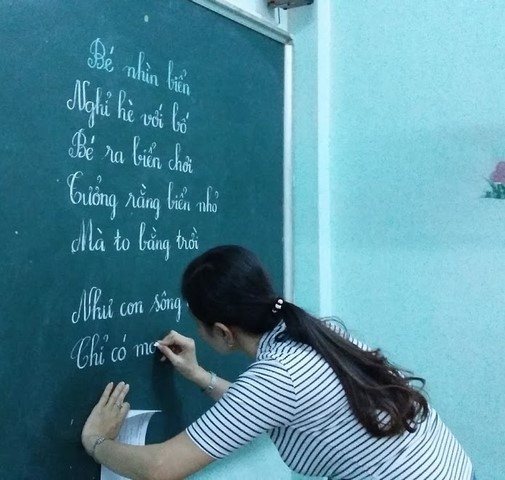 Bé nhìn biển
Nghỉ hè với bố
Bé ra biển chơi
Tưởng rằng biển nhỏ
Mà to bằng trời
Như con sông
Chỉ có mo